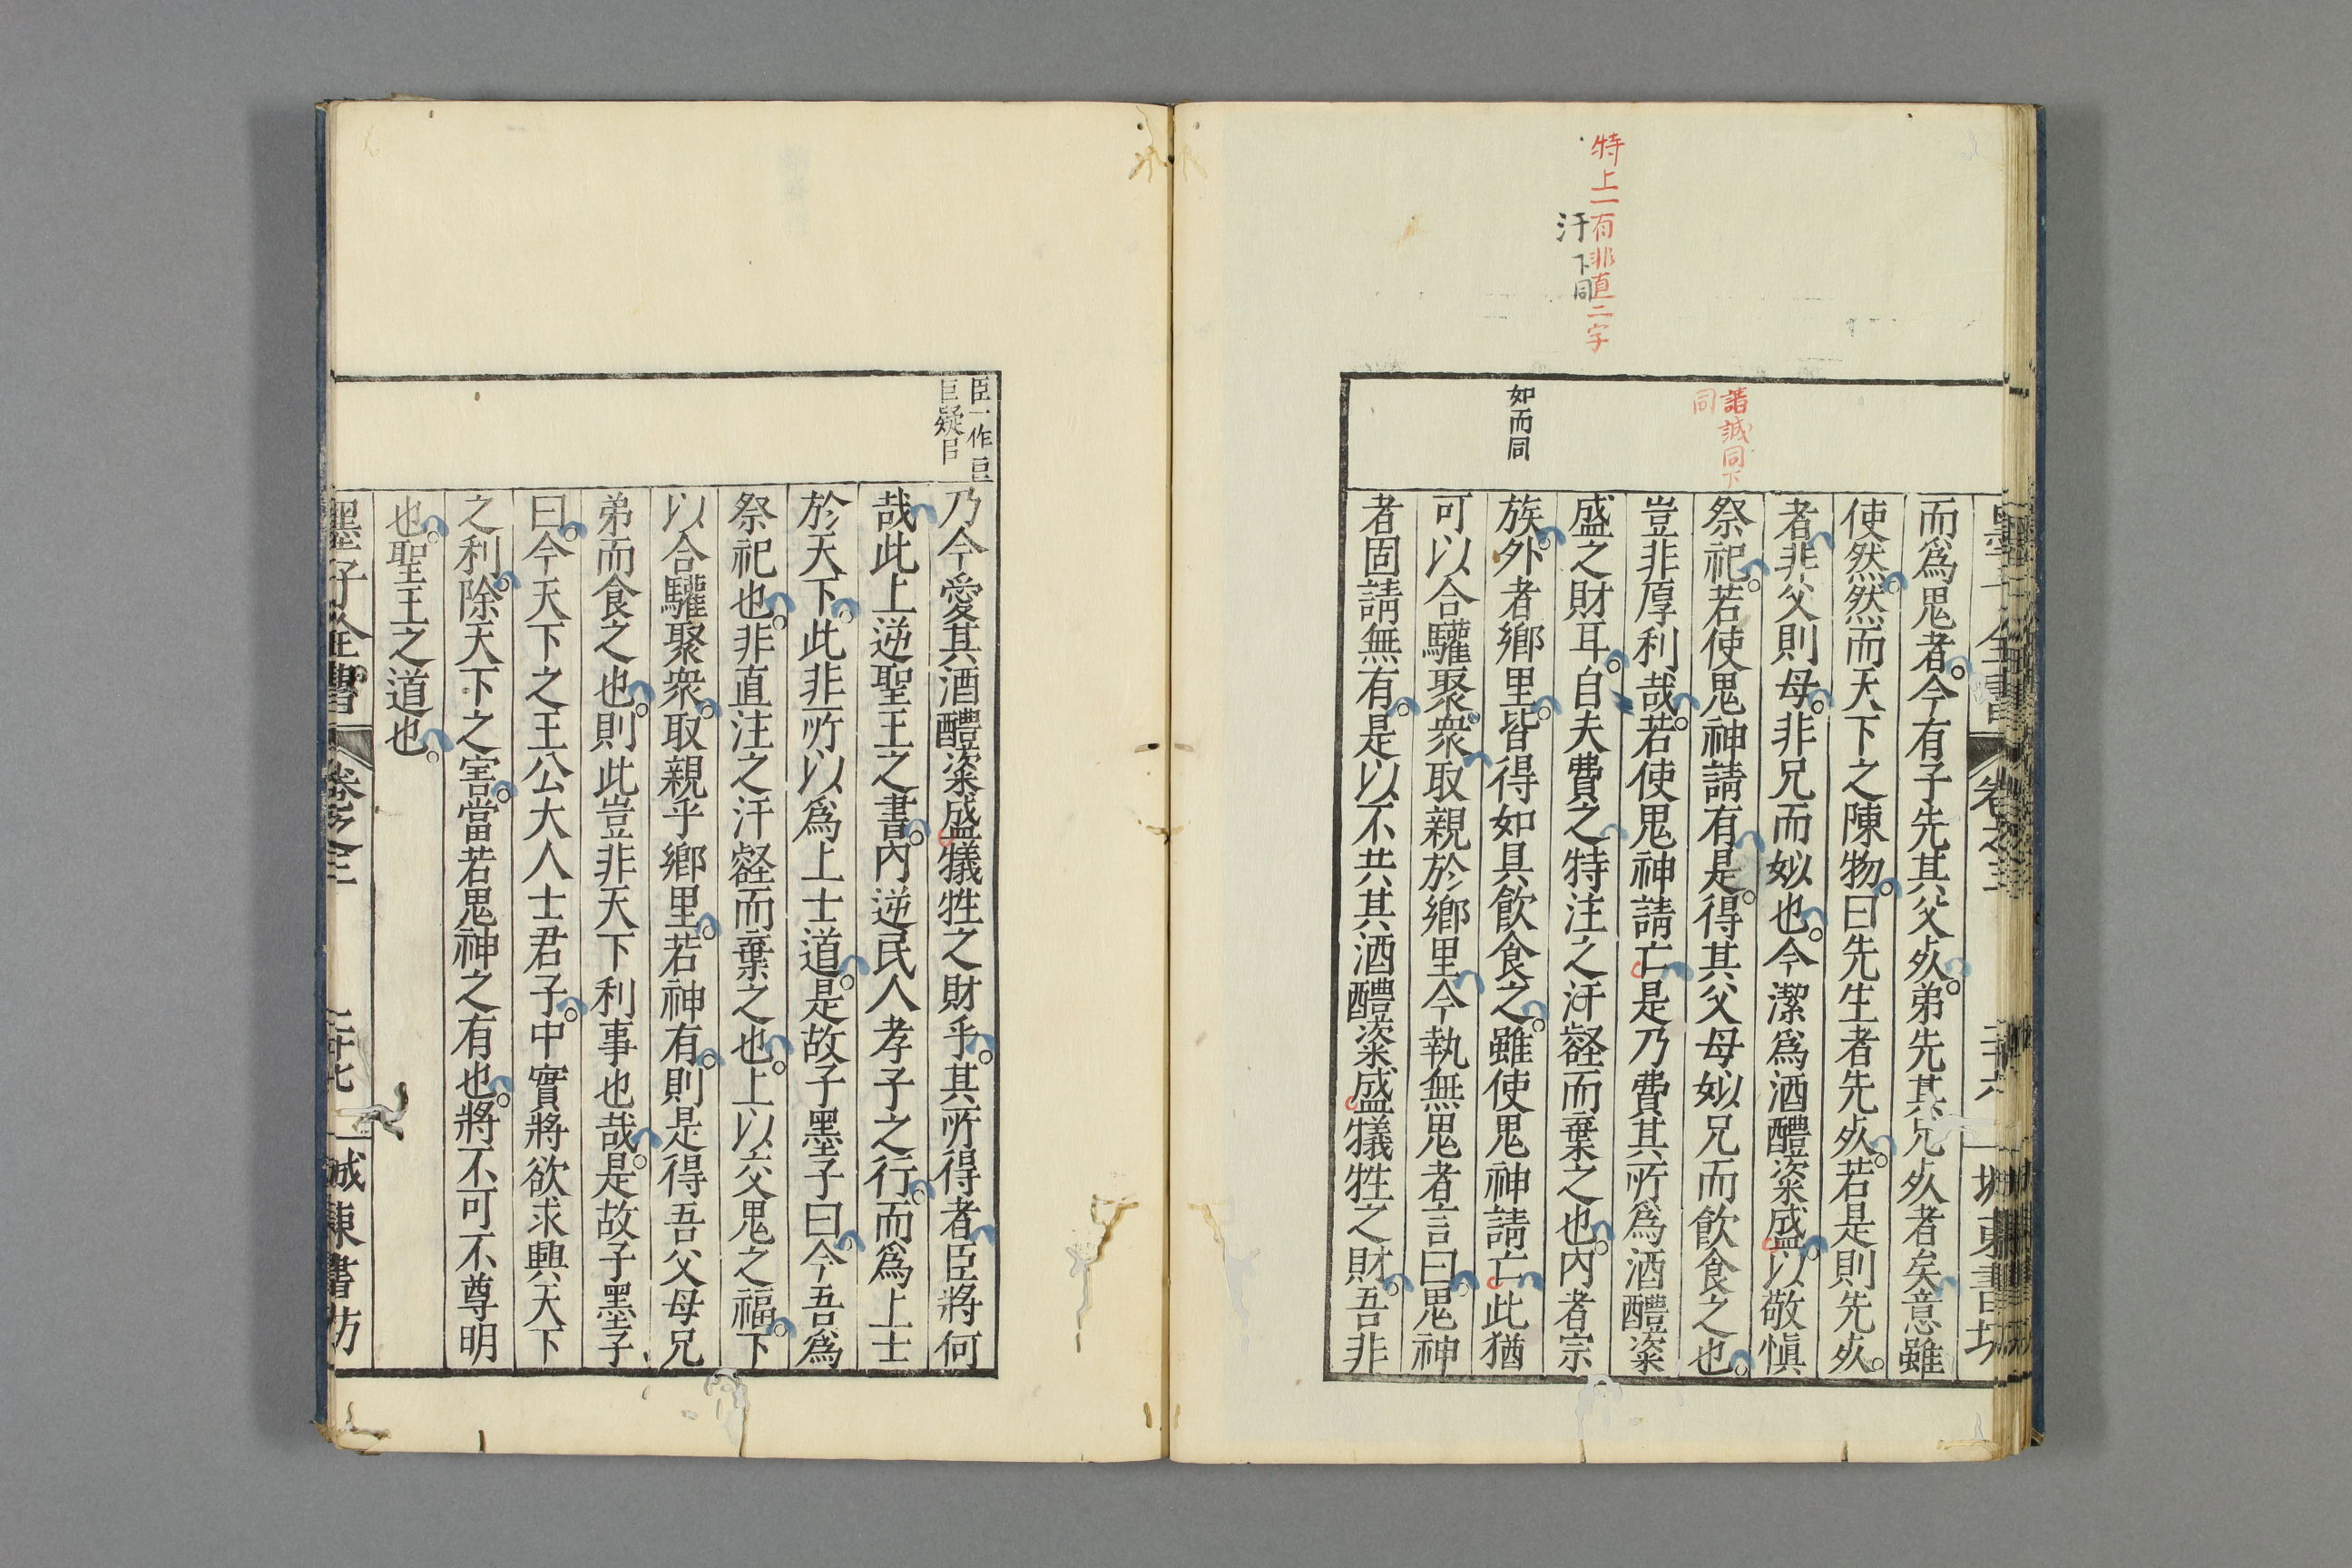 特上一有非直二字
汙下同
請誠同下
同
如而同
墨子全書 卷之三 三十六 城東書坊
而爲鬼者。今有子先其父死。弟先其兄死者矣意雖
使然然而天下之陳物。曰先生者先死。若是則先死。
者非父則母。非兄而姒也。今潔爲酒醴粢盛。以敬愼
祭祀。若使鬼神請有是。得其父母姒兄而飲食之也。
豈非厚利哉。若使鬼神請亡是乃費其所爲酒醴粢
盛之財耳。自夫費之特注之汙壑而棄之也。內者宗
族。外者鄉里。皆得如具飲食之。雖使鬼神請亡此猶
可以合驩聚衆。取親於鄉里今執無鬼者言曰。鬼神
者固請無有。是以不共其酒醴粢盛犧牲之財。吾非
臣一作𦣝
巨疑
乃今愛其酒醴粢盛犧牲之財乎。其所得者臣將何
哉此上逆聖王之書。內逆民人孝子之行。而爲上士
於天下。此非所以爲上士道。是故子墨子曰。今吾爲
祭祀也。非直注之汙壑而棄之也。上以交鬼之福。下
以合驩聚衆。取親乎鄉里。若神有。則是得吾父母兄
弟而食之也。則此豈非天下利事也哉。是故子墨子
曰。今天下之王公大人士君子。中實將欲求興天下
之利。除天下之害。當若鬼神之有也。將不可不尊明
也。聖王之道也。
墨子全書 卷之三 三十七 城東書坊